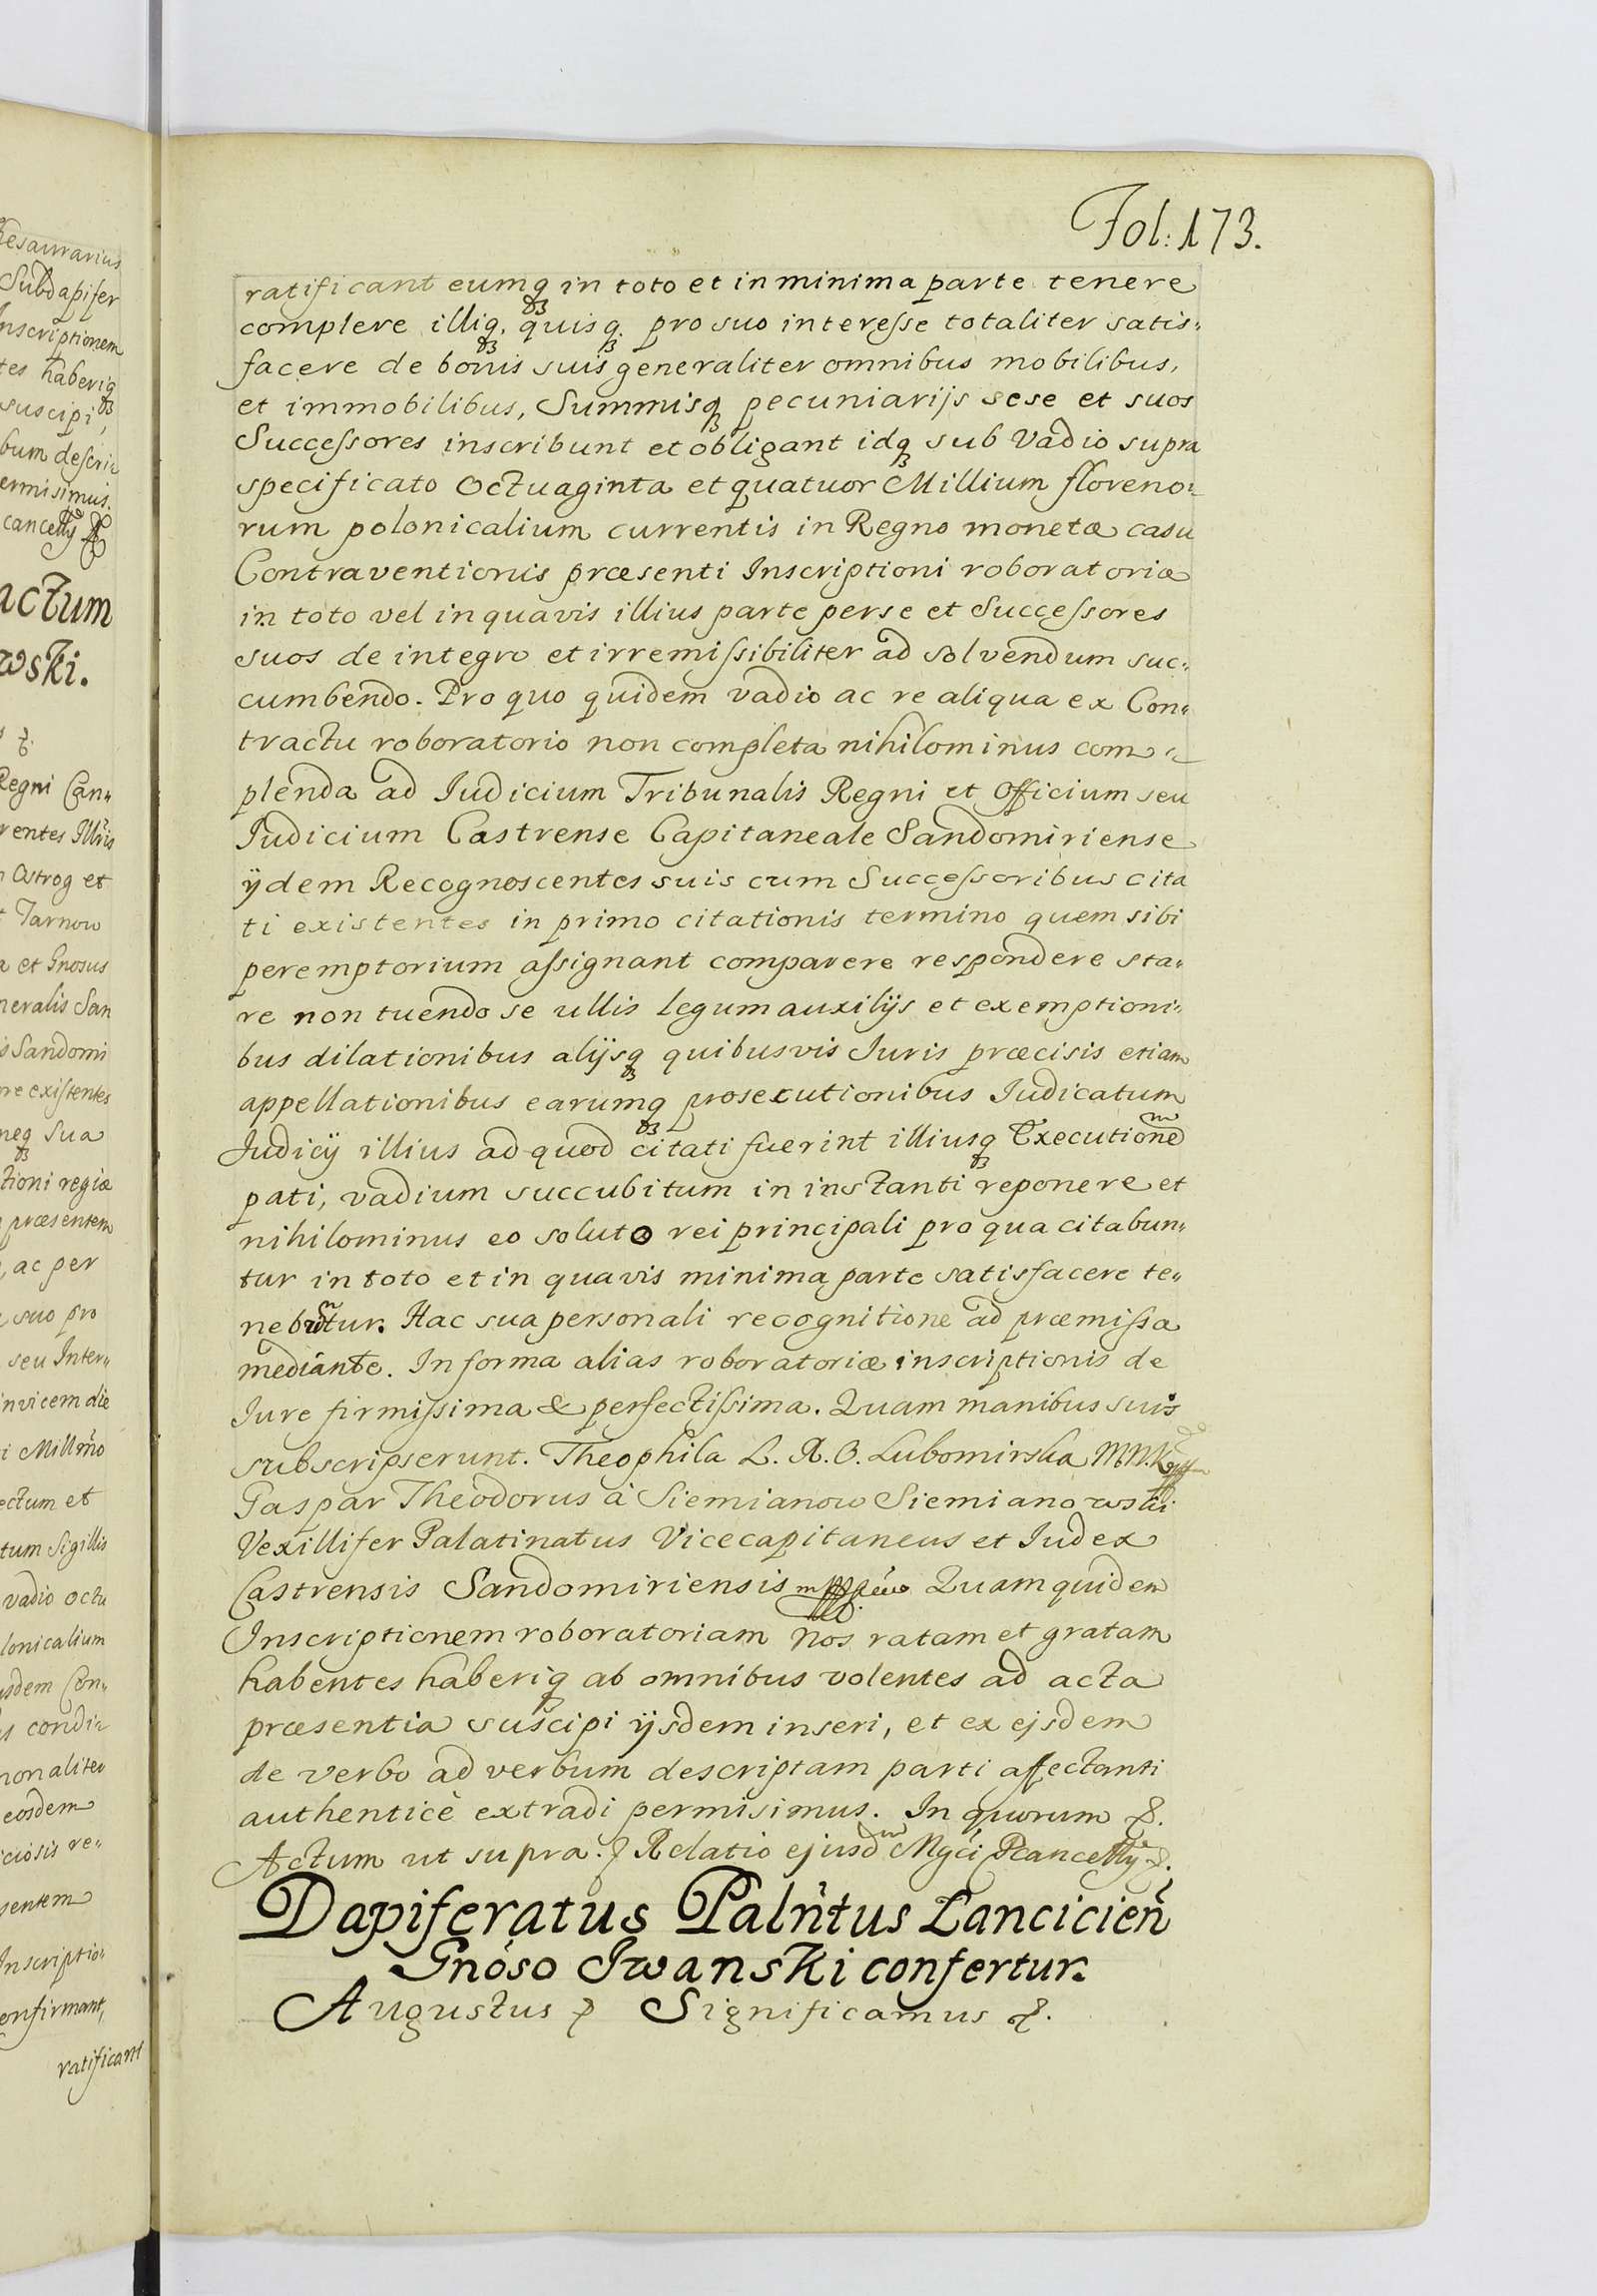 Fol: 173.
ratificant eumq₃ in toto et in minima parte tenere
complere illiq₃, quisq₃ pro suo interesse totaliter satis„
facere de bonis suis generaliter omnibus mobilibus,
et immobilibus, Summisq₃ pecuniarijs sese et suos
Successores inscribunt et obligant idq₃ sub Vadio supra
specificato Octuaginta et quatuor Millium floreno„
rum polonicalium currentis in Regno monetæ casu
Contraventionis præsenti Inscriptioni roboratoriæ
in toto vel in quavis illius parte per se et Successores
suos de integro et irremissibiliter ad solvendum suc„
cumbendo. Pro quo quidem vadio ac re aliqua ex Con„
tractu roboratorio non completa nihilominus com„
plenda ad Iudicium Tribunalis Regni et Officium seu
Iudicium Castrense Capitaneale Sandomiriense
ijdem Recognoscentes suis cum Successoribus cita
ti existentes in primo citationis termino quem sibi
peremptorium assignant comparere respondere sta„
re non tuendo se ullis legum auxilijs et exemptioni„
bus dilationibus alijsq₃ quibusvis Iuris præcisis etiam
appellationibus earumq₃ prosecutionibus Iudicatum
Iudicij illius ad quod citati fuerint illiusq₃ Executionem
pati, vadium succubitum in instanti reponere et
nihilominus eo soluto rei principali pro qua citabun„
tur in toto et in quavis minima parte satisfacere te„
nebuntur. Hac sua personali recognitione ad præmissa
mediante. In forma alias roboratoriæ inscriptionis de
Iure firmissima & perfectissima. Quam manibus suis
subscripserunt. Theophila L. X. O. Lubomirska M. W. K.
Gaspar Theodorus à Siemianow Siemianowski
Vexillifer Palatinatus Vicecapitaneus et Iudex
Castrensis Sandomiriensis Quam quidem
Inscriptionem roboratoriam Nos ratam et gratam
habentes haberiq₃ ab omnibus volentes ad acta
præsentia suscipi ijsdem inseri, et ex ejsdem
de verbo ad verbum descriptam parti affectanti
authenticè extradi permisimus. In quorum &.
Actum ut supra. & Relatio ejusdem Mgci Pcancellrij &.
Dapiferatus Palntus Lancicień
Gnoso Iwanski confertur.
Augustus & Significamus &.